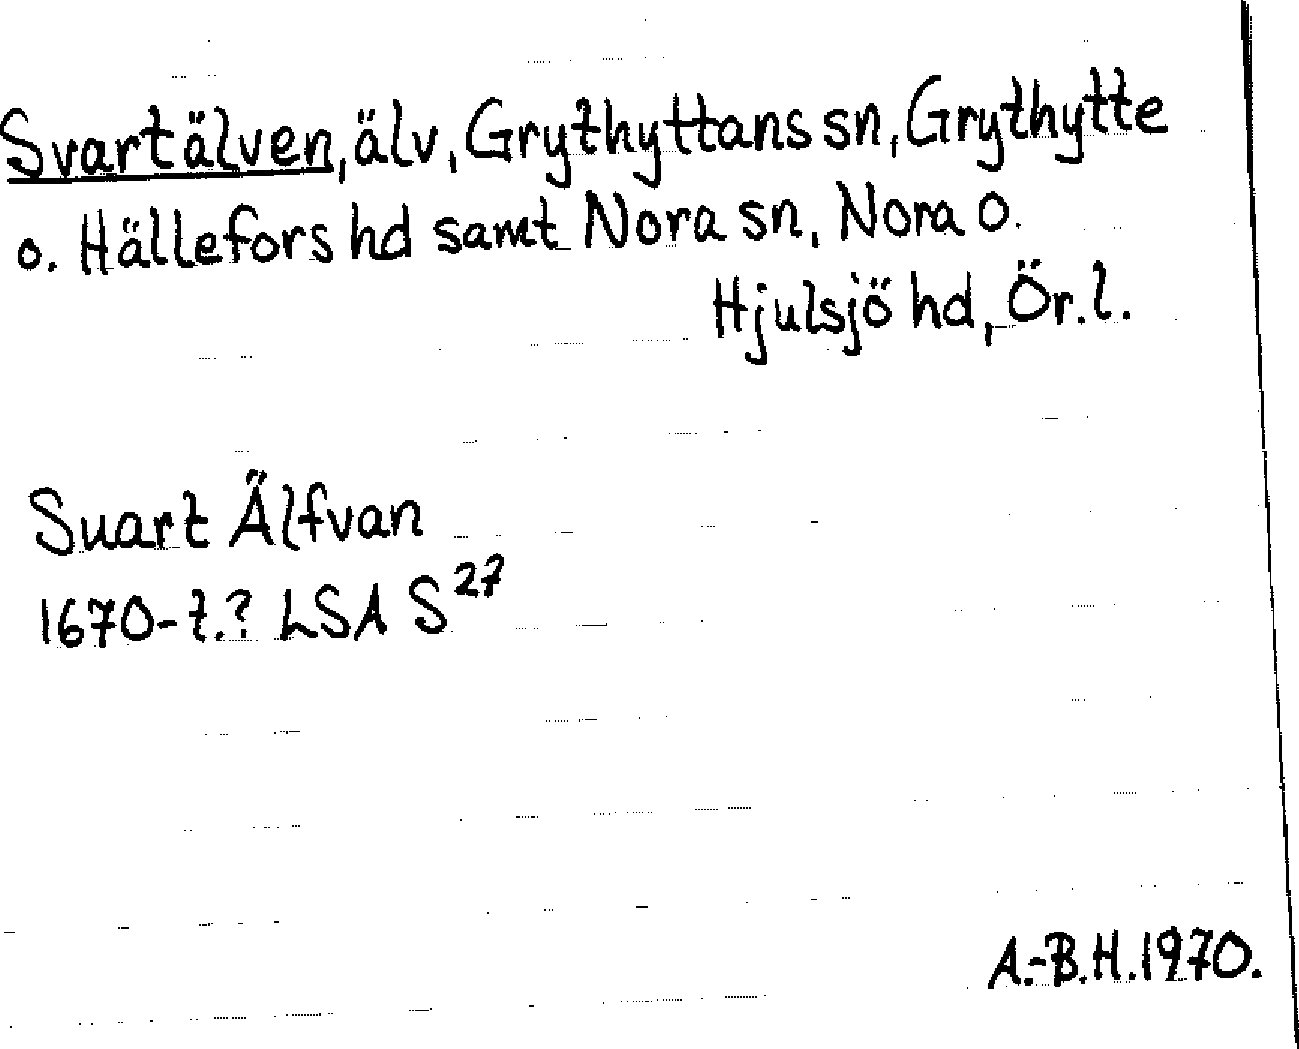 Svartälven, älv, Grythyttans sn, Grythytte
o. Hällefors hd samt Nora sn, Nora o.
Hjulsjö hd, Ör. l.
Suart Älfvan
1670-t.? LSA S27
A.-B.H. 1970.